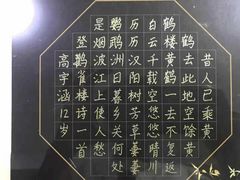 昔人已乘黄
鹤去此地空馀黄
鹤楼黄鹤一去不复返
白云千载空悠悠晴川
历历汉阳树芳草萋萋
鹦鹉洲日暮乡关何处
是烟波江上使人愁
登鹳雀诗一首
高宇涵12岁